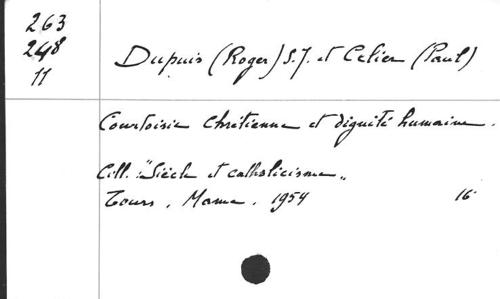 263
248
11
Dupuis (Roger) S.J. et Celier (Paul)
Courtoisie chrétienne et dignité humaine.
Coll. "Siècle et catholicisme"
Tours, Mame, 1954 16°